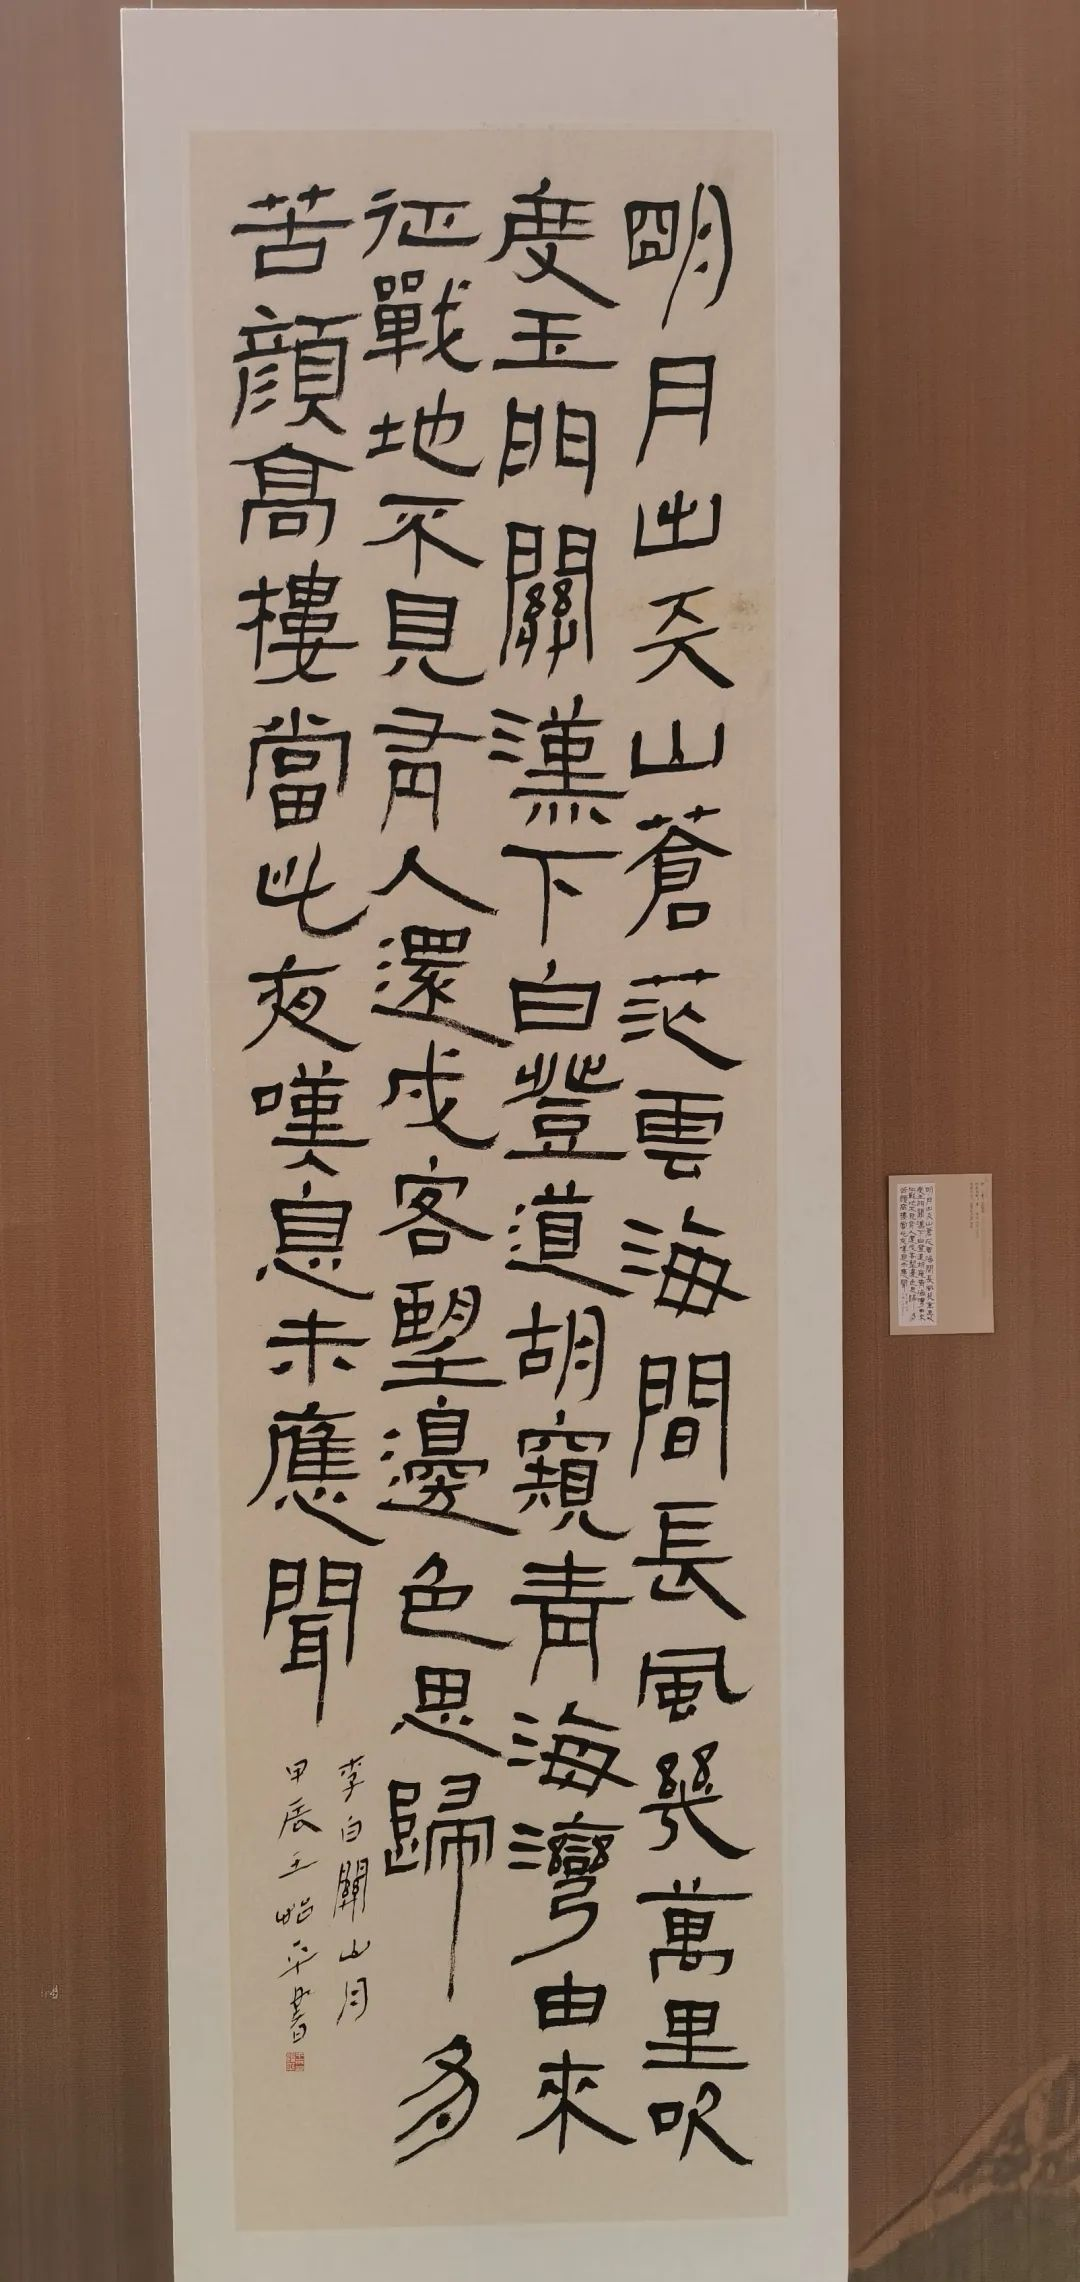 明月出天山蒼茫雲海間長風幾萬里吹
度玉門關漢下白登道胡窺青海灣由來
征戰地不見有人還戍客望邊色思歸多
苦顏高樓當此夜嘆息未應聞
李白關山月
甲辰王怡平書